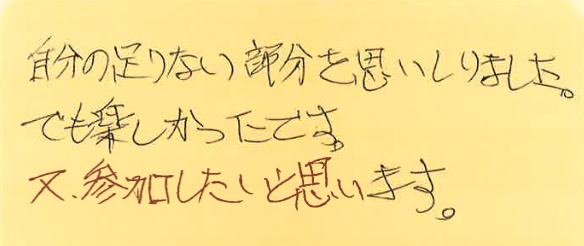 自分の足りない部分を思いしりました。
でも楽しかったです。
又、参加したいと思います。